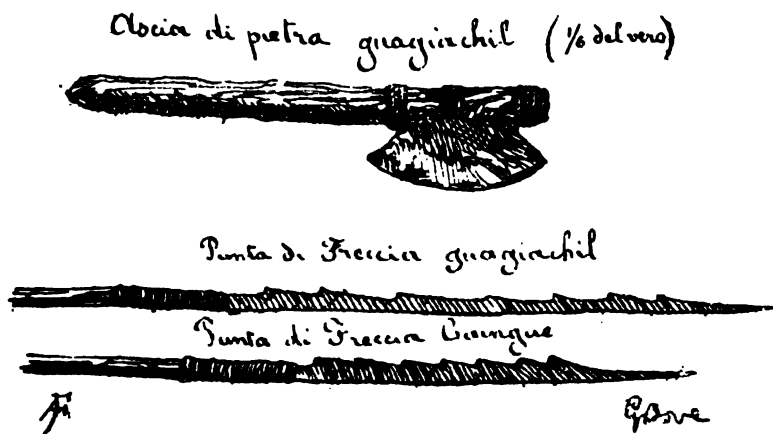 Ascia di pietra guagiachil (1/6 del vero)
Punta di Freccia guagiachil
Punta di Freccia Caingue
GBove